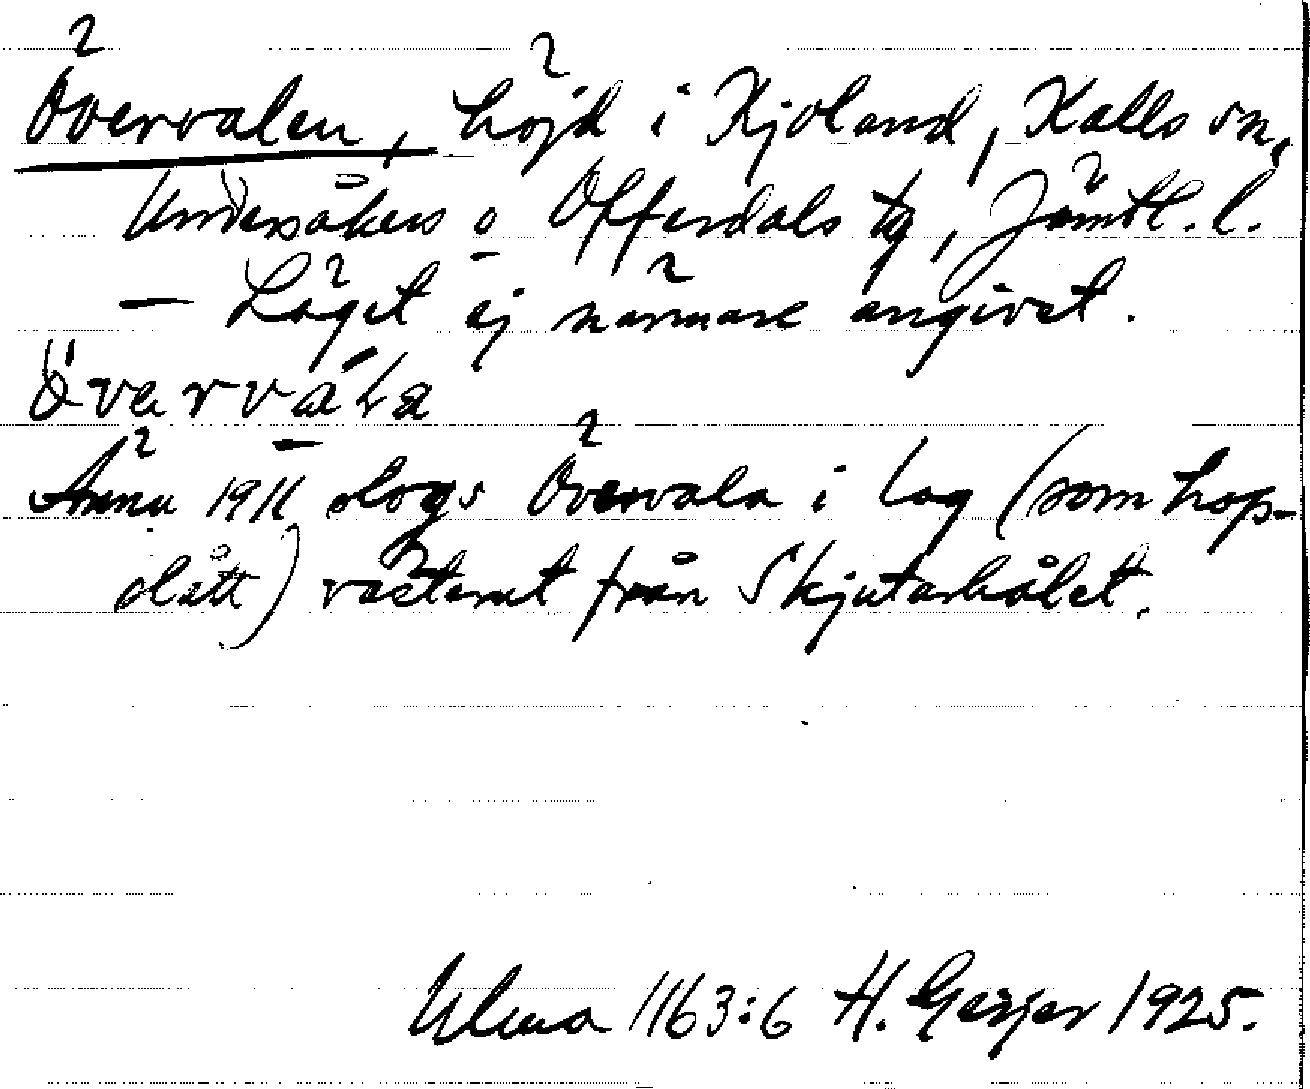 Övervalen, höjd i Kjoland, Kalls sn,
Undersåkers o Offerdals tg, Jämtl. l.
— Läget ej närmare angivet.
övarvála
Ännu 1911 slogs Övervala i lag (som hop-
slått) västerut från Skjutarhålet.
Ulma 1163:6 H. Geijer 1925.